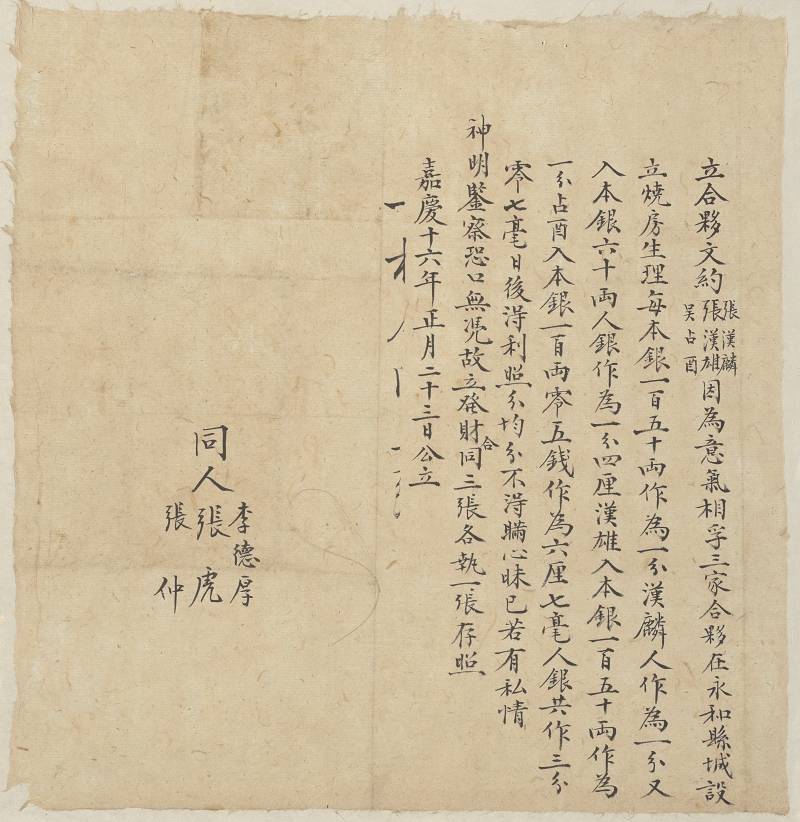 立合夥文約張漢麟張漢雄吳占酉因為意氣相孚三家合夥在永和縣城設
立燒房生理每本銀一百五十両作為一分漢麟人作為一分又
入本銀六十両人銀作為一分四厘漢雄入本銀一百五十両作為
一分占酉入本銀一百両零五錢作為六厘七毫人銀共作三分
零七毫日後淂利照分均分不淂瞞心昧已若有私情
神明鑒察恐口無凴故立発財合同三張各執一張存照
嘉慶十六年正月二十三日公立
同人
李德厚
張虎
張仲